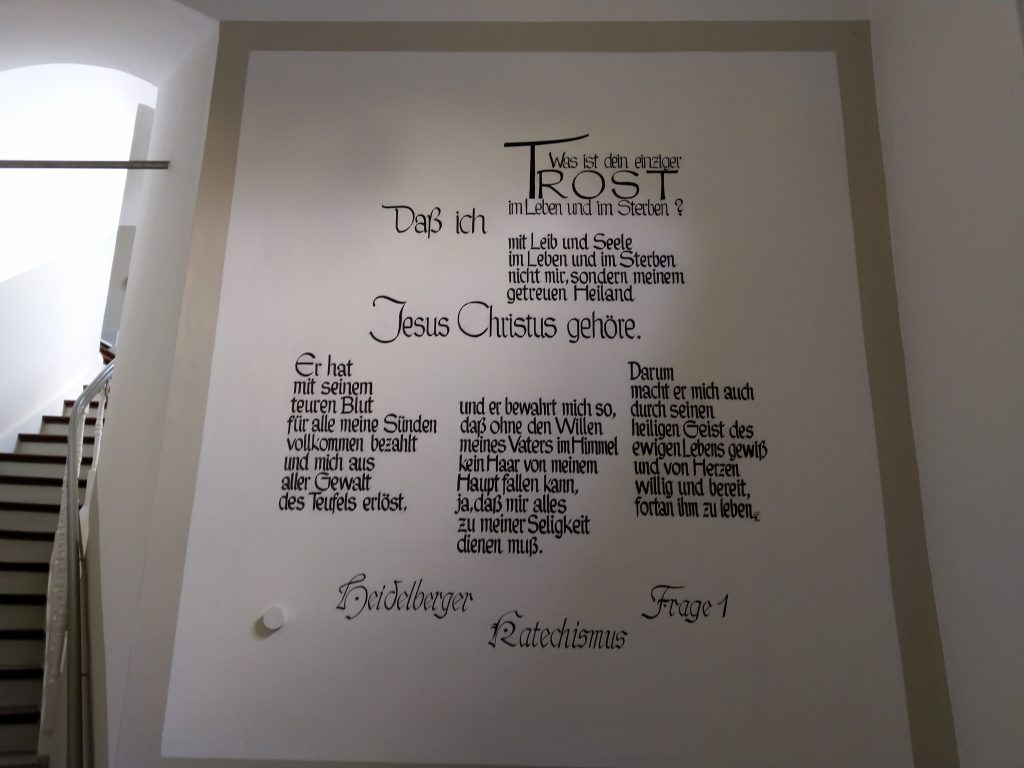 Was ist dein einziger
TROST
im Leben und im Sterben?
Daß ich
mit Leib und Seele
im Leben und im Sterben
nicht mir, sondern meinem
getreuen Heiland
Jesus Christus gehöre.
Er hat
mit seinem
teuren Blut
für alle meine Sünden
vollkommen bezahlt
und mich aus
aller Gewalt
des Teufels erlöst,
und er bewahrt mich so,
daß ohne den Willen
meines Vaters im Himmel
kein Haar von meinem
Haupt fallen kann,
ja, daß mir alles
zu meiner Seligkeit
dienen muß.
Darum
macht er mich auch
durch seinen
heiligen Geist des
ewigen Lebens gewiß
und von Herzen
willig und bereit,
fortan ihm zu leben.
Heidelberger
Katechismus
Frage 1